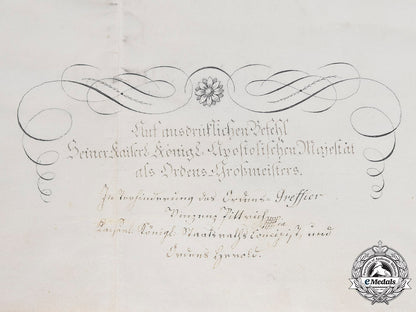 Auf ausdrücklichen Befehl
Seiner Kaiserl. Königl. Apostolischen Majestät
als Ordens-Großmeisters.
In Verhinderung des Ordens-Greffier
Vinzenz Pittrich
Kaiserl. Königl. Staatsraths Concipist, und
Ordens Herold.
eMedals